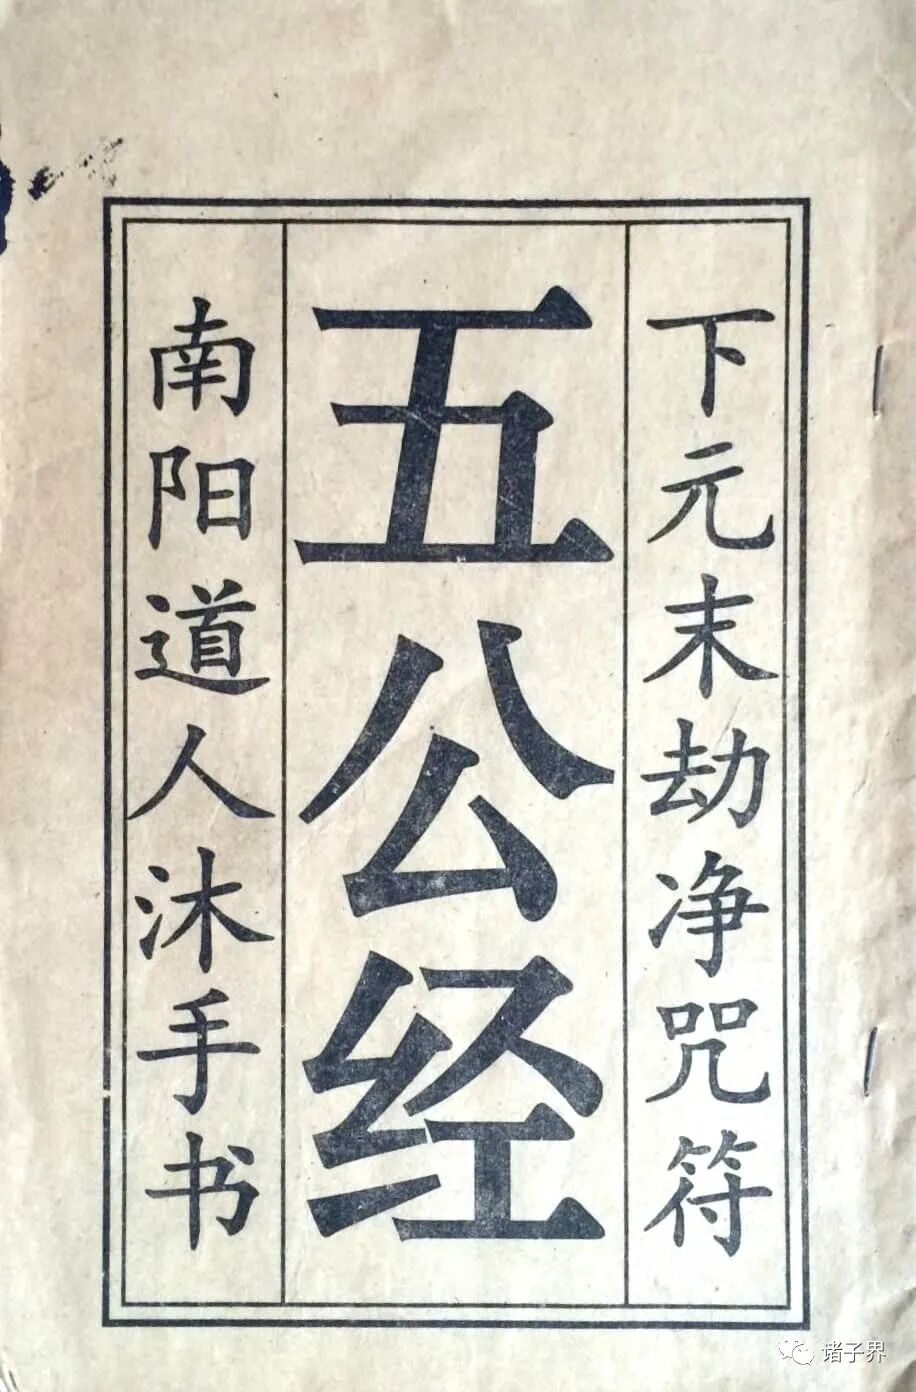 下元末劫净咒符
五公经
南阳道人沐手书
诸子界